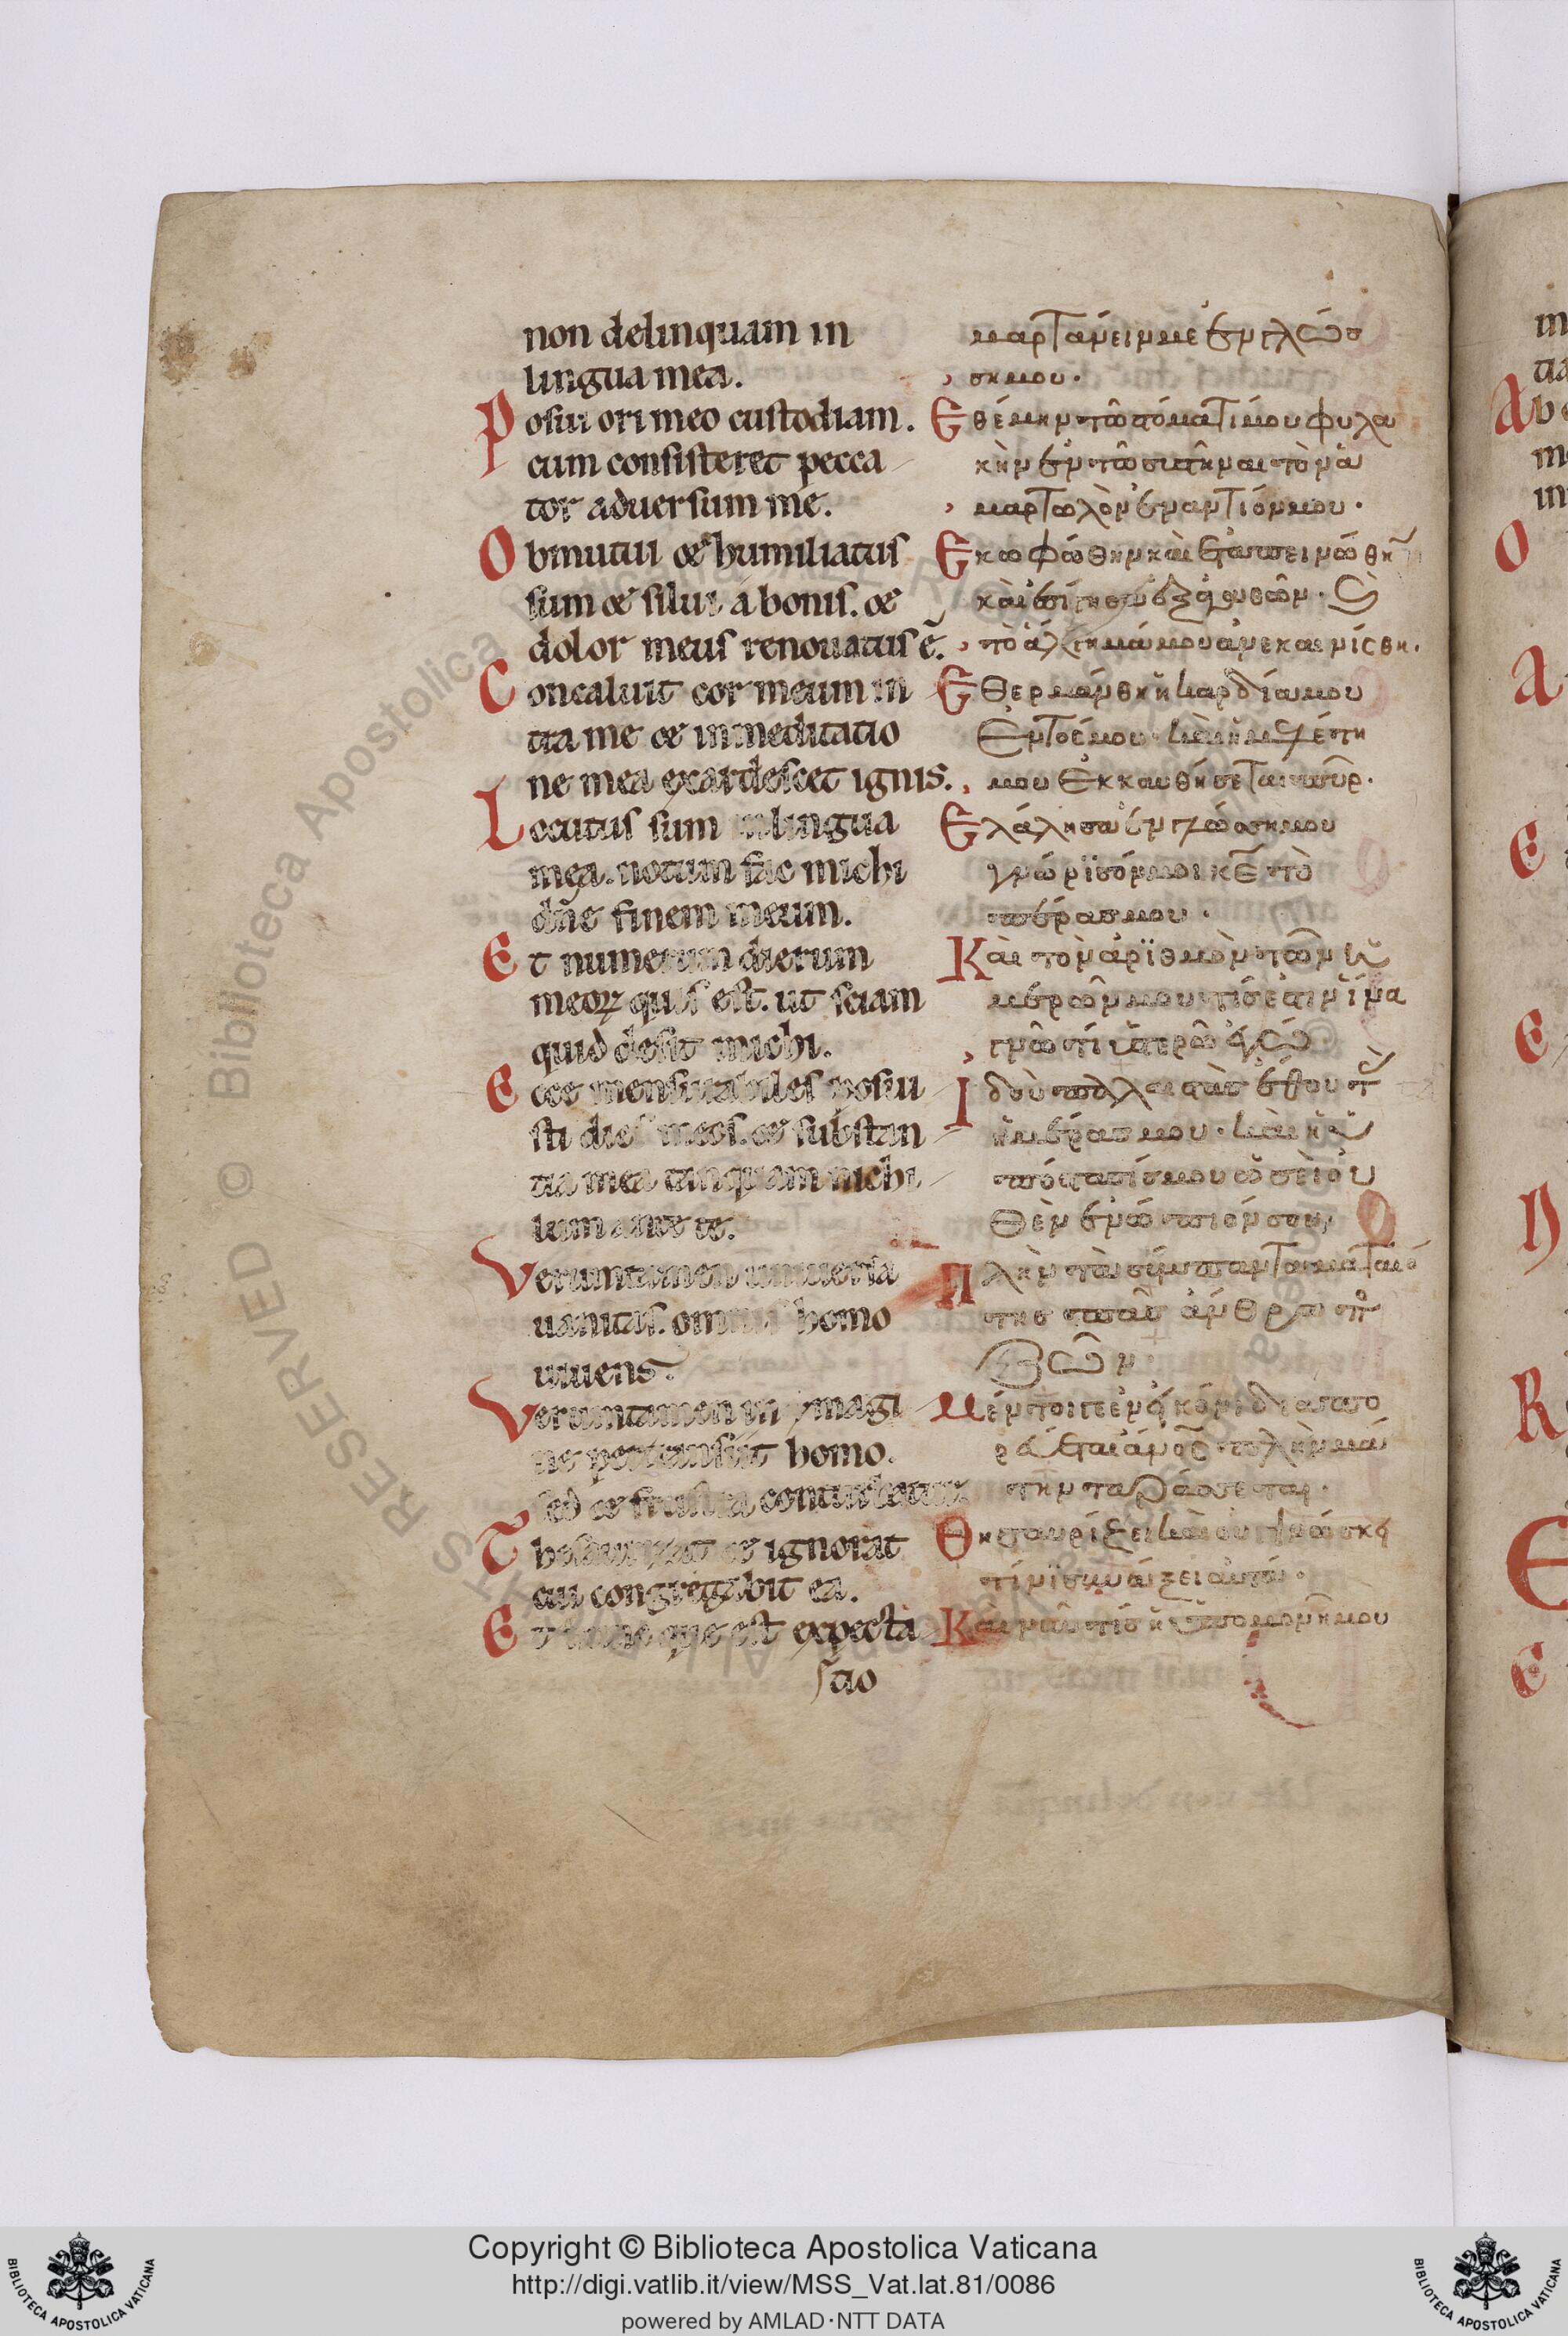 non delinquam in
lingua mea.
Posui ori meo custodiam.
cum consisteret pecca
tor adversum me.
Obmutui et humiliatus
sum et silui a bonis. et
dolor meus renovatus ē.
Concaluit cor meum in
tra me et in meditatio
ne mea exardescet ignis.
Locutus sum in lingua
mea. notum fac michi
dn̄e finem meum.
Et numerum dierum
meoꝝ quis est. ut sciam
quid desit michi.
Ecce mensurabiles posui
sti dies meos. et substan
tia mea tanquam nichi
lum ante te.
Verumtamen universa
vanitas. omnis homo
vivens.
Verumtamen in ymagi
ne pertransiit homo.
sed et frustra conturbatur.
Thesaurizat et ignorat
cui congregabit ea.
Et nunc que est expecta
tio
μαρτάνειν με ἐν γλώσ
ση μου.
Εθέμην τῶ στόματί μου φυλα
κὴν ἐν τῶ συστῆναι τὸν ἁ
μαρτωλὸν ἐναντίον μου.
Εκωφώθην καὶ ἐταπεινώθη
καὶ ἐσίγησα ἐξ ἀγαθῶν.
τὸ ἄλγημά μου ἀνεκαινίσθη.
Εθερμάνθη ἡ καρδία μου
Εντός μου καὶ ἐν τῆ μελέτη
μου Εκκαυθήσεται πῦρ.
Ελάλησα ἐν γλώσση μου
γνώρϊσόν μοι κε̄ τὸ
πέρας μου.
Καὶ τὸν ἀρϊθμὸν τῶν ἡ
μερῶν μου τίς ἐστιν ἵνα
γνῶ τί ὑστερῶ ἐγώ
Ιδοὺ παλαιστὰς ἔθου τ
ἡμέρας μου. καὶ ἡ ὑ
πόστασίς μου ὡσεὶ οὐ
Θὲν ἐνώπιόν σου,
Πλὴν τὰ σύμπαντα ματαιό
της πᾶς ἄνθρωπο
ζῶν
Μέντοιγε ἐν εἰκόνι διαπο
ρεύεται ἄνος πλὴν μά
την ταράσσεται.
Θησαυρίζει καὶ οὐ γινώσκει
τίνϊ συνάξει αὐτά.
Καὶ νῦν τίς ἡ ὑπομονή μου
Copyright © Biblioteca Apostolica Vaticana
http://digi.vatlib.it/view/MSS_Vat.lat.81/0086
powered by AMLAD·NTT DATA
BIBLIOTECA APOSTOLICA VATICANA
BIBLIOTECA APOSTOLICA VATICANA